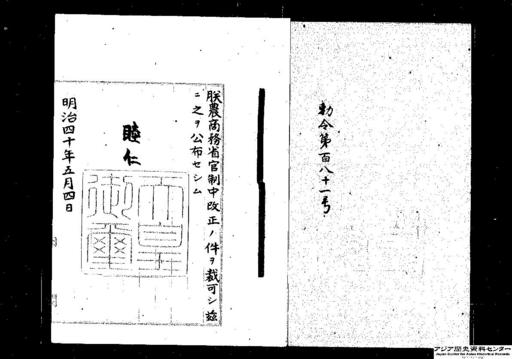 勅令第百八十一号
朕農商務省官制中改正ノ件ヲ裁可シ茲
ニ之ヲ公布セシム
睦仁
天皇
御璽
明治四十年五月四日
アジア歴史資料センター
Japan Center for Asian Historical Records